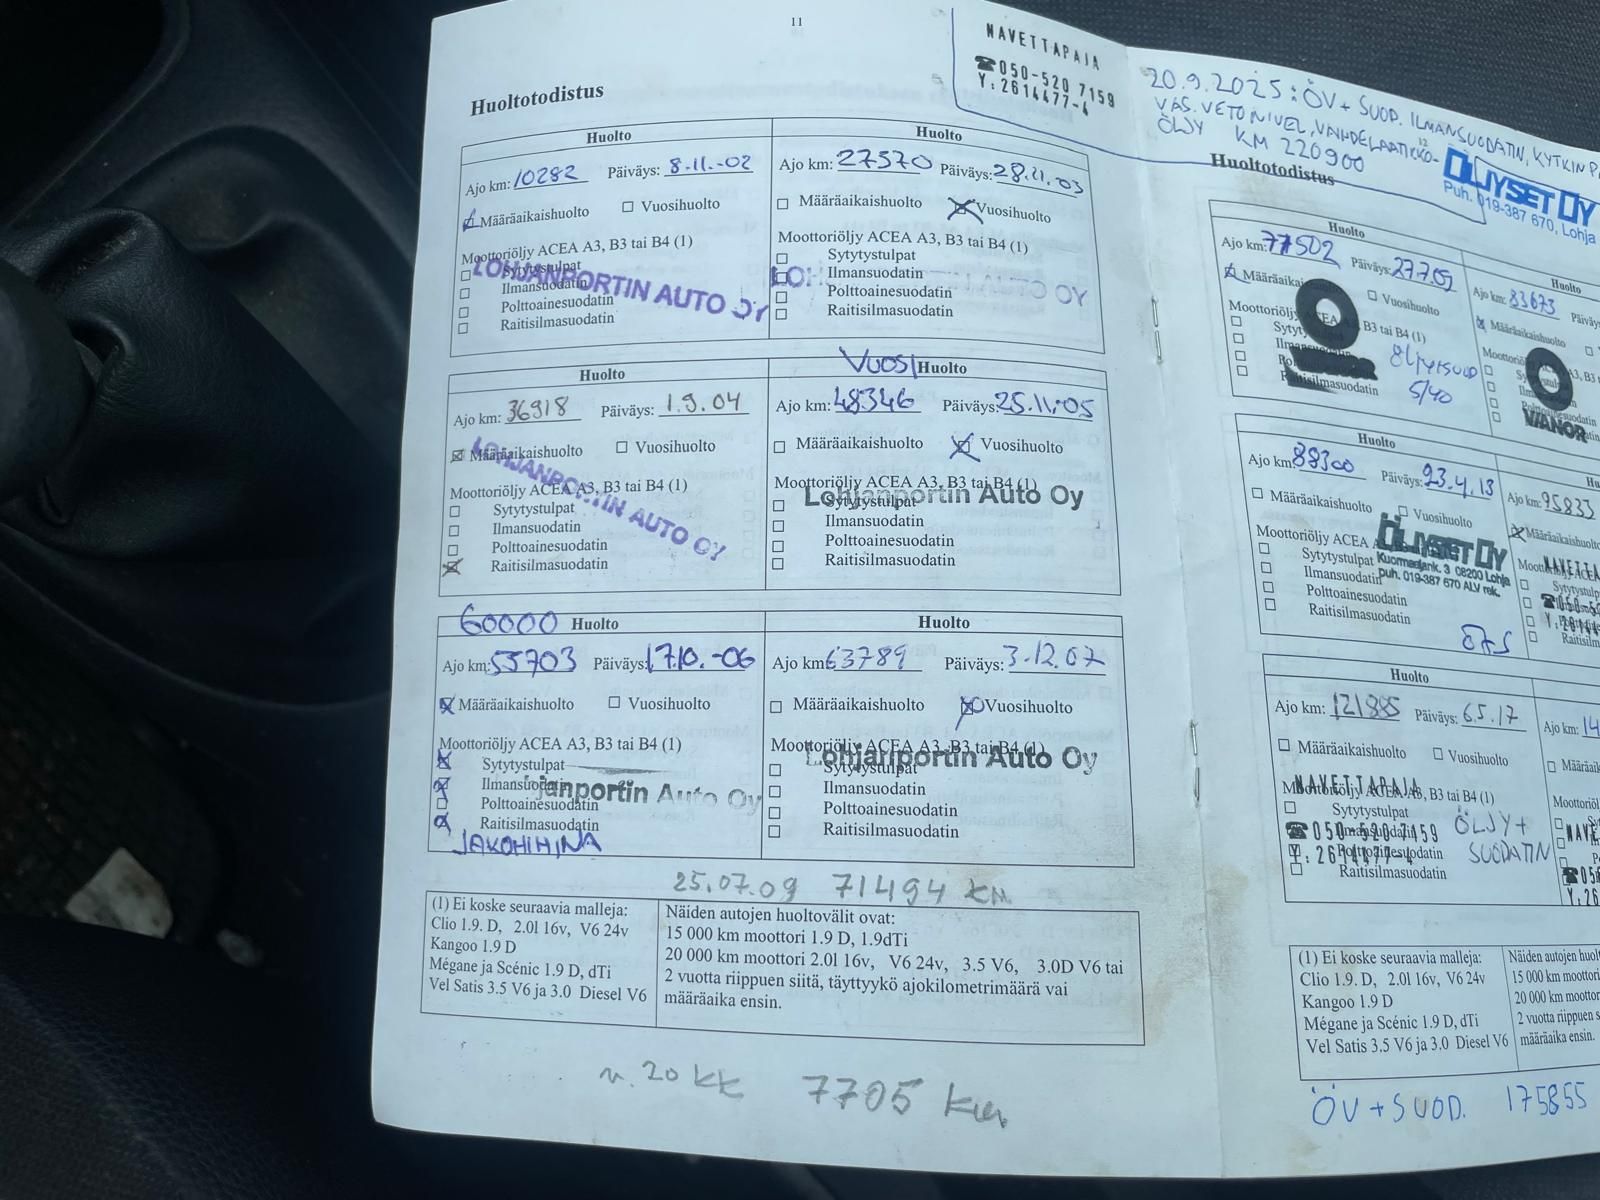 11
NAVETTAPAJA
☎050-520 7159
Y:2614477-4
Huoltotodistus
Huolto
Ajo km: 10282 Päiväys: 8.11.-02
Määräaikaishuolto Vuosihuolto
Moottoriöljy ACEA A3, B3 tai B4 (1)
Sytytystulpat
Ilmansuodatin
Polttoainesuodatin
Raitisilmasuodatin
LOHJANPORTIN AUTO OY
Huolto
Ajo km: 27570 Päiväys: 28.11.03
Määräaikaishuolto Vuosihuolto
Moottoriöljy ACEA A3, B3 tai B4 (1)
Sytytystulpat
Ilmansuodatin
Polttoainesuodatin
Raitisilmasuodatin
Huolto
Ajo km: 36918 Päiväys: 1.9.04
Määräaikaishuolto Vuosihuolto
Moottoriöljy ACEA A3, B3 tai B4 (1)
Sytytystulpat
Ilmansuodatin
Polttoainesuodatin
Raitisilmasuodatin
LOHJANPORTIN AUTO OY
VUOSI Huolto
Ajo km: 48346 Päiväys: 25.11.-05
Määräaikaishuolto Vuosihuolto
Moottoriöljy ACEA A3, B3 tai B4 (1)
Lohjanportin Auto Oy
Sytytystulpat
Ilmansuodatin
Polttoainesuodatin
Raitisilmasuodatin
60000 Huolto
Ajo km: 55703 Päiväys: 17.10.-06
Määräaikaishuolto Vuosihuolto
Moottoriöljy ACEA A3, B3 tai B4 (1)
Sytytystulpat
Ilmansuodatin
janportin Auto Oy
Polttoainesuodatin
Raitisilmasuodatin
JAKOHIHNA
Huolto
Ajo km: 63789 Päiväys: 3.12.07
Määräaikaishuolto Vuosihuolto
Moottoriöljy ACEA A3, B3 tai B4 (1)
Lohjanportin Auto Oy
Sytytystulpat
Ilmansuodatin
Polttoainesuodatin
Raitisilmasuodatin
25.07.09 71494 km
(1) Ei koske seuraavia malleja:
Clio 1.9. D, 2.0l 16v, V6 24v
Kangoo 1.9 D
Mégane ja Scénic 1.9 D, dTi
Vel Satis 3.5 V6 ja 3.0 Diesel V6
Näiden autojen huoltovälit ovat:
15 000 km moottori 1.9 D, 1.9dTi
20 000 km moottori 2.0l 16v, V6 24v, 3.5 V6, 3.0D V6 tai
2 vuotta riippuen siitä, täyttyykö ajokilometrimäärä vai
määräaika ensin.
n. 20 kk 7705 km
20.9.2025: ÖV + SUOD. ILMANSUODATIN, KYTKIN
VAS. VETONIVEL, VAIHDELAATIKKO-
ÖLJY KM 220900
12
Huoltotodistus
ÖLJYSET OY
Puh. 019-387 670, Lohja
Huolto
Ajo km: 77502 Päiväys: 27.7.09
Vuosihuolto
B3 tai B4 (1)
Raitisilmasuodatin
5/40
Huolto
Ajo km: 83673
Määräaikaishuolto
VIANOR
Huolto
Ajo km: 88300 Päiväys: 23.4.13
Määräaikaishuolto Vuosihuolto
Moottoriöljy ACEA
Sytytystulpat
Ilmansuodatin
Polttoainesuodatin
Raitisilmasuodatin
ÖLJYSET OY
Kuormaajank. 3 08200 Lohja
puh. 019-387 670 ALV rek.
Ajo km: 95833
Määräaikaishuolto
Huolto
Ajo km: 121885 Päiväys: 6.5.17
Määräaikaishuolto Vuosihuolto
NAVETTAPAJA
Moottoriöljy ACEA A3, B3 tai B4 (1)
Sytytystulpat
☎050-520 7159
Y:2614477-4
Polttoainesuodatin
Raitisilmasuodatin
ÖLJY +
SUODATIN
(1) Ei koske seuraavia malleja:
Clio 1.9. D, 2.0l 16v, V6 24v
Kangoo 1.9 D
Mégane ja Scénic 1.9 D, dTi
Vel Satis 3.5 V6 ja 3.0 Diesel V6
Näiden autojen
15 000 km moottori
20 000 km moottori
2 vuotta riippuen
määräaika ensin.
ÖV + SUOD. 175855